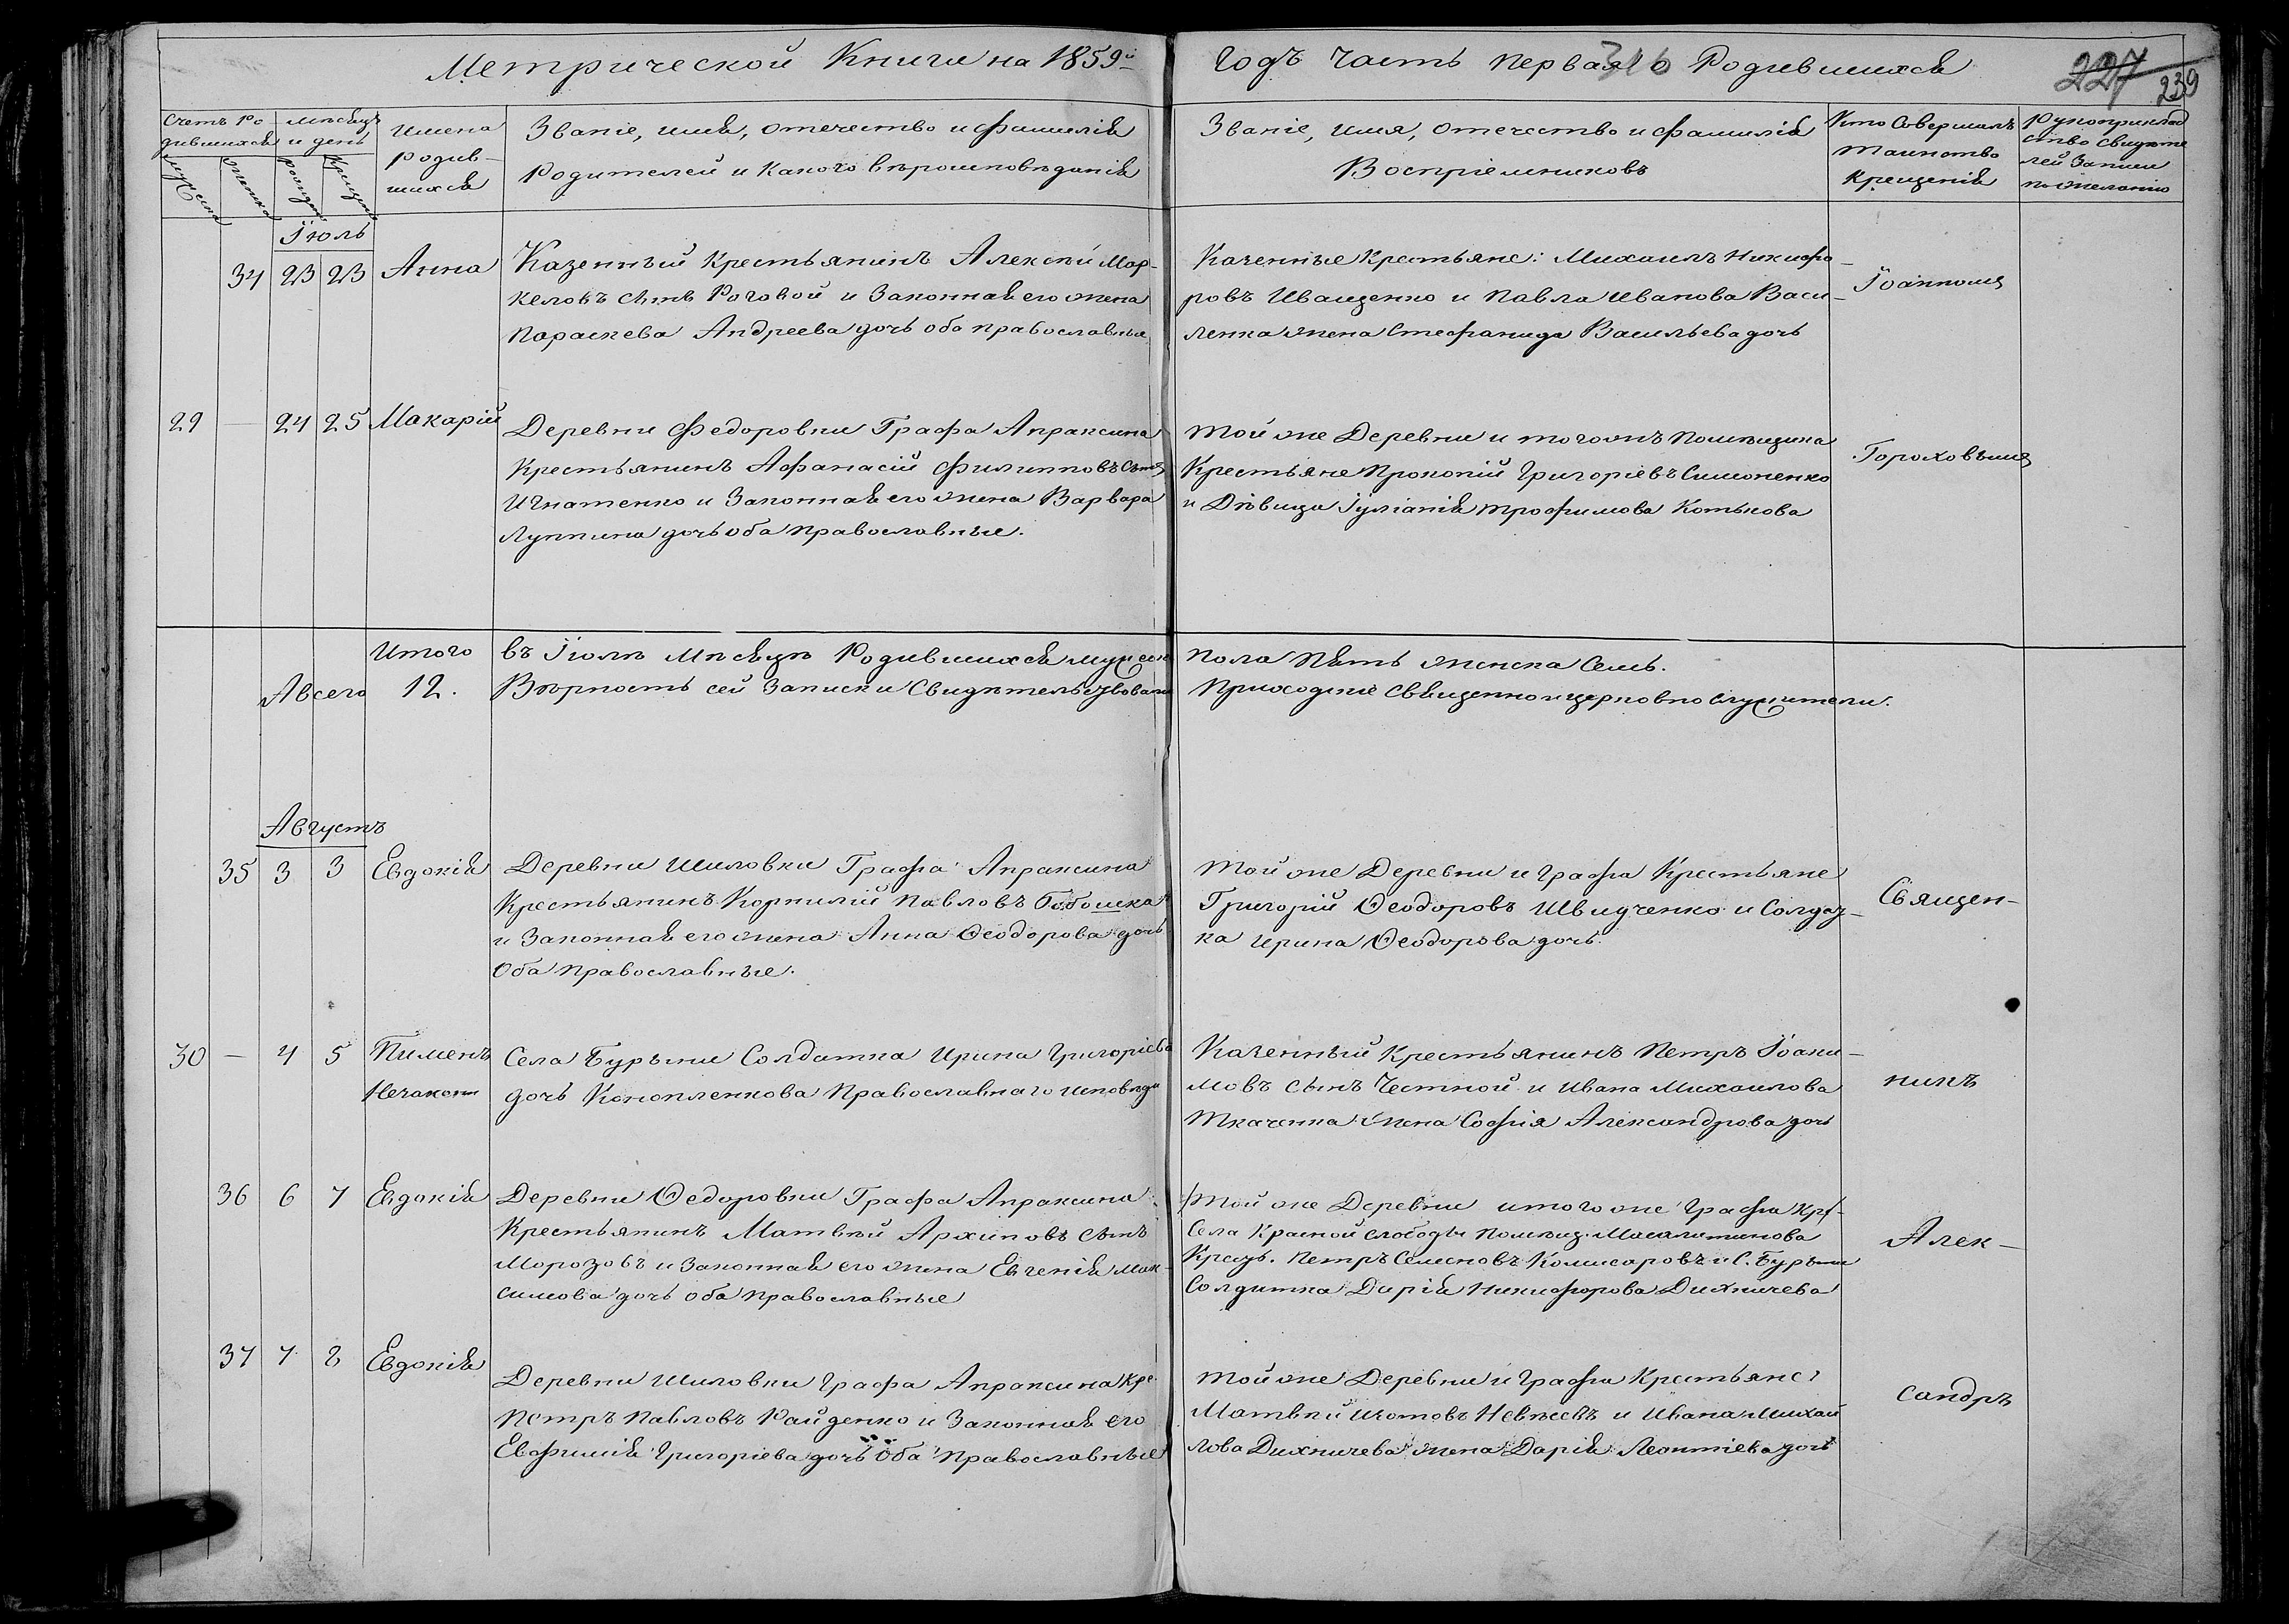 Метрической Книги на 1859й
Годъ Часть Первая о Родившихся
316
227
239
Счетъ Ро
дившихся
Мѣсяцъ
и день
Имена
Родив-
шихся
Званіе, имя, отечество и фамилія
Родителей и какого вѣроисповѣданія
Званіе, имя, отечество и фамилія
Воспріемниковъ
Кто Совершалъ
таинство
крещенія
Рукоприклад
ство свидѣте
лей Записи
по желанію
Іюль
34 23 23 Анна
Казенный Крестьянинъ Алексѣй Мар-
келовъ сынъ Роговой и Законная его жена
Параскева Андреева дочь оба православные
Казенные Крестьяне: Михаилъ Никифо-
ровъ Иващенко и Павла Иванова Васи-
ленка жена Стефанида Васильева дочь
29 — 24 25 Макарій
Деревни Федоровки Графа Апраксина
Крестьянинъ Афанасій Филипповъ сынъ
Игнатенко и Законная его жена Варвара
Луппина дочь оба православные.
Той же Деревни и тогожъ помѣщика
Крестьяне Прокопій Григоріевъ Симоненко
и Дѣвица Іуліанія Трофимова Котькова
Гороховымъ
Итого въ Іюлѣ Мѣсяцѣ Родившихся мужеска
пола Пять женска Семь.
А всего 12. Вѣрность сей Записки Свидѣтельствовали
Приходскіе Священно и церковно служители.
Августъ
35 3 3 Евдокія
Деревни Шиловки Графа Апраксина
Крестьянинъ Корнилій Павловъ
и Законная его жена Анна Ѳеодорова дочь
Оба православные.
Той же Деревни и Графа Крестьяне
Григорій Ѳеодоровъ Швидченко и Солдат-
ка Ирина Ѳеодорова дочь.
Священ-
30 — 4 5 Пименъ
Незакон
Села Бурыни Солдатка Ирина Григоріева
дочь Конопленкова Православнаго исповѣд
Казенный Крестьянинъ Петръ Іоаки-
мовъ сынъ Честной и Ивана Михаилова
Ткаченка жена Софія Александрова дочь
никъ
36 6 7 Евдокія
Деревни Ѳедоровки Графа Апраксина
Крестьянинъ Матвѣй Архиповъ сынъ
Морозовъ и Законная его жена Евгенія Мак-
симова дочь оба православные
Той же Деревни и того же Графа Кр-
Села Красной слободы помѣщ.
Кресть. Петръ Семеновъ Комисаровъ и С. Бурыни
Солдатка Дарія Никифорова Дихничева
Алек-
37 7 8 Евдокія
Деревни Шиловки Графа Апраксина Кре.
Петръ Павловъ Райденко и Законная его
Евфимія Григоріева дочь Оба Православные
Той же Деревни и Графа Крестьяне:
Матвѣй и Ивана Михай
лова Дихничева жена Дарія Леонтіева дочь
сандръ